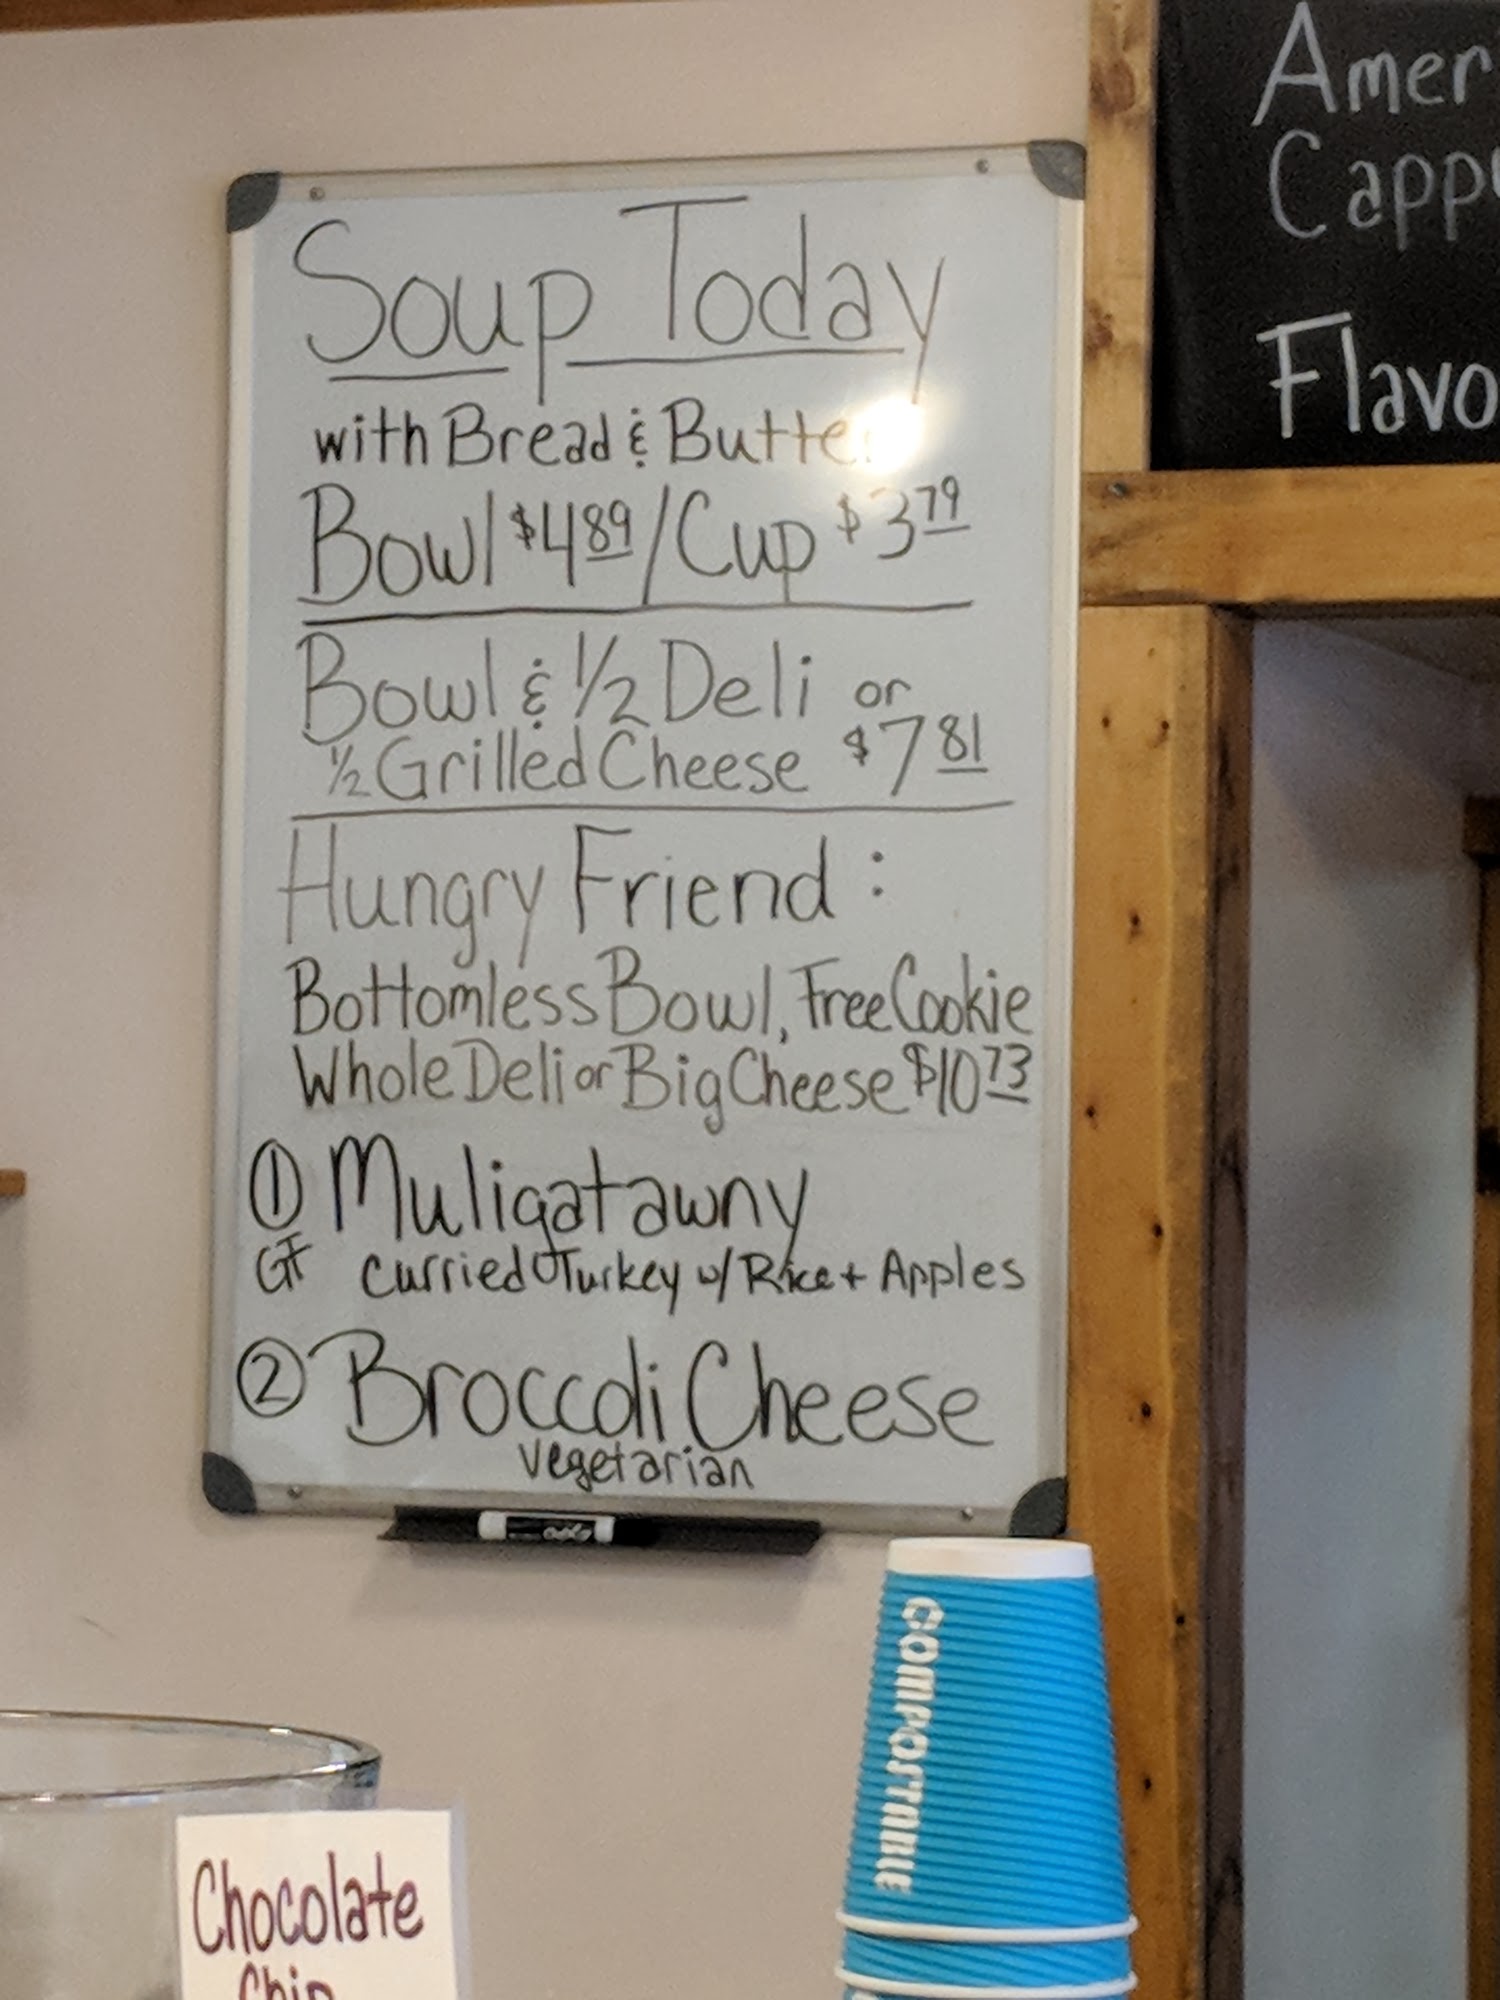 Soup Today
with Bread & Butter
Bowl $4.89 / Cup $3.79
Bowl & 1/2 Deli or
1/2 Grilled Cheese $7.81
Hungry Friend :
Bottomless Bowl, Free Cookie
Whole Deli or Big Cheese $10.73
① Muligatawny
GF Curried Turkey w/ Rice + Apples
② Broccoli Cheese
vegetarian
Amer
Capp
Flavo
COMPOSTABLE
Chocolate
Chip